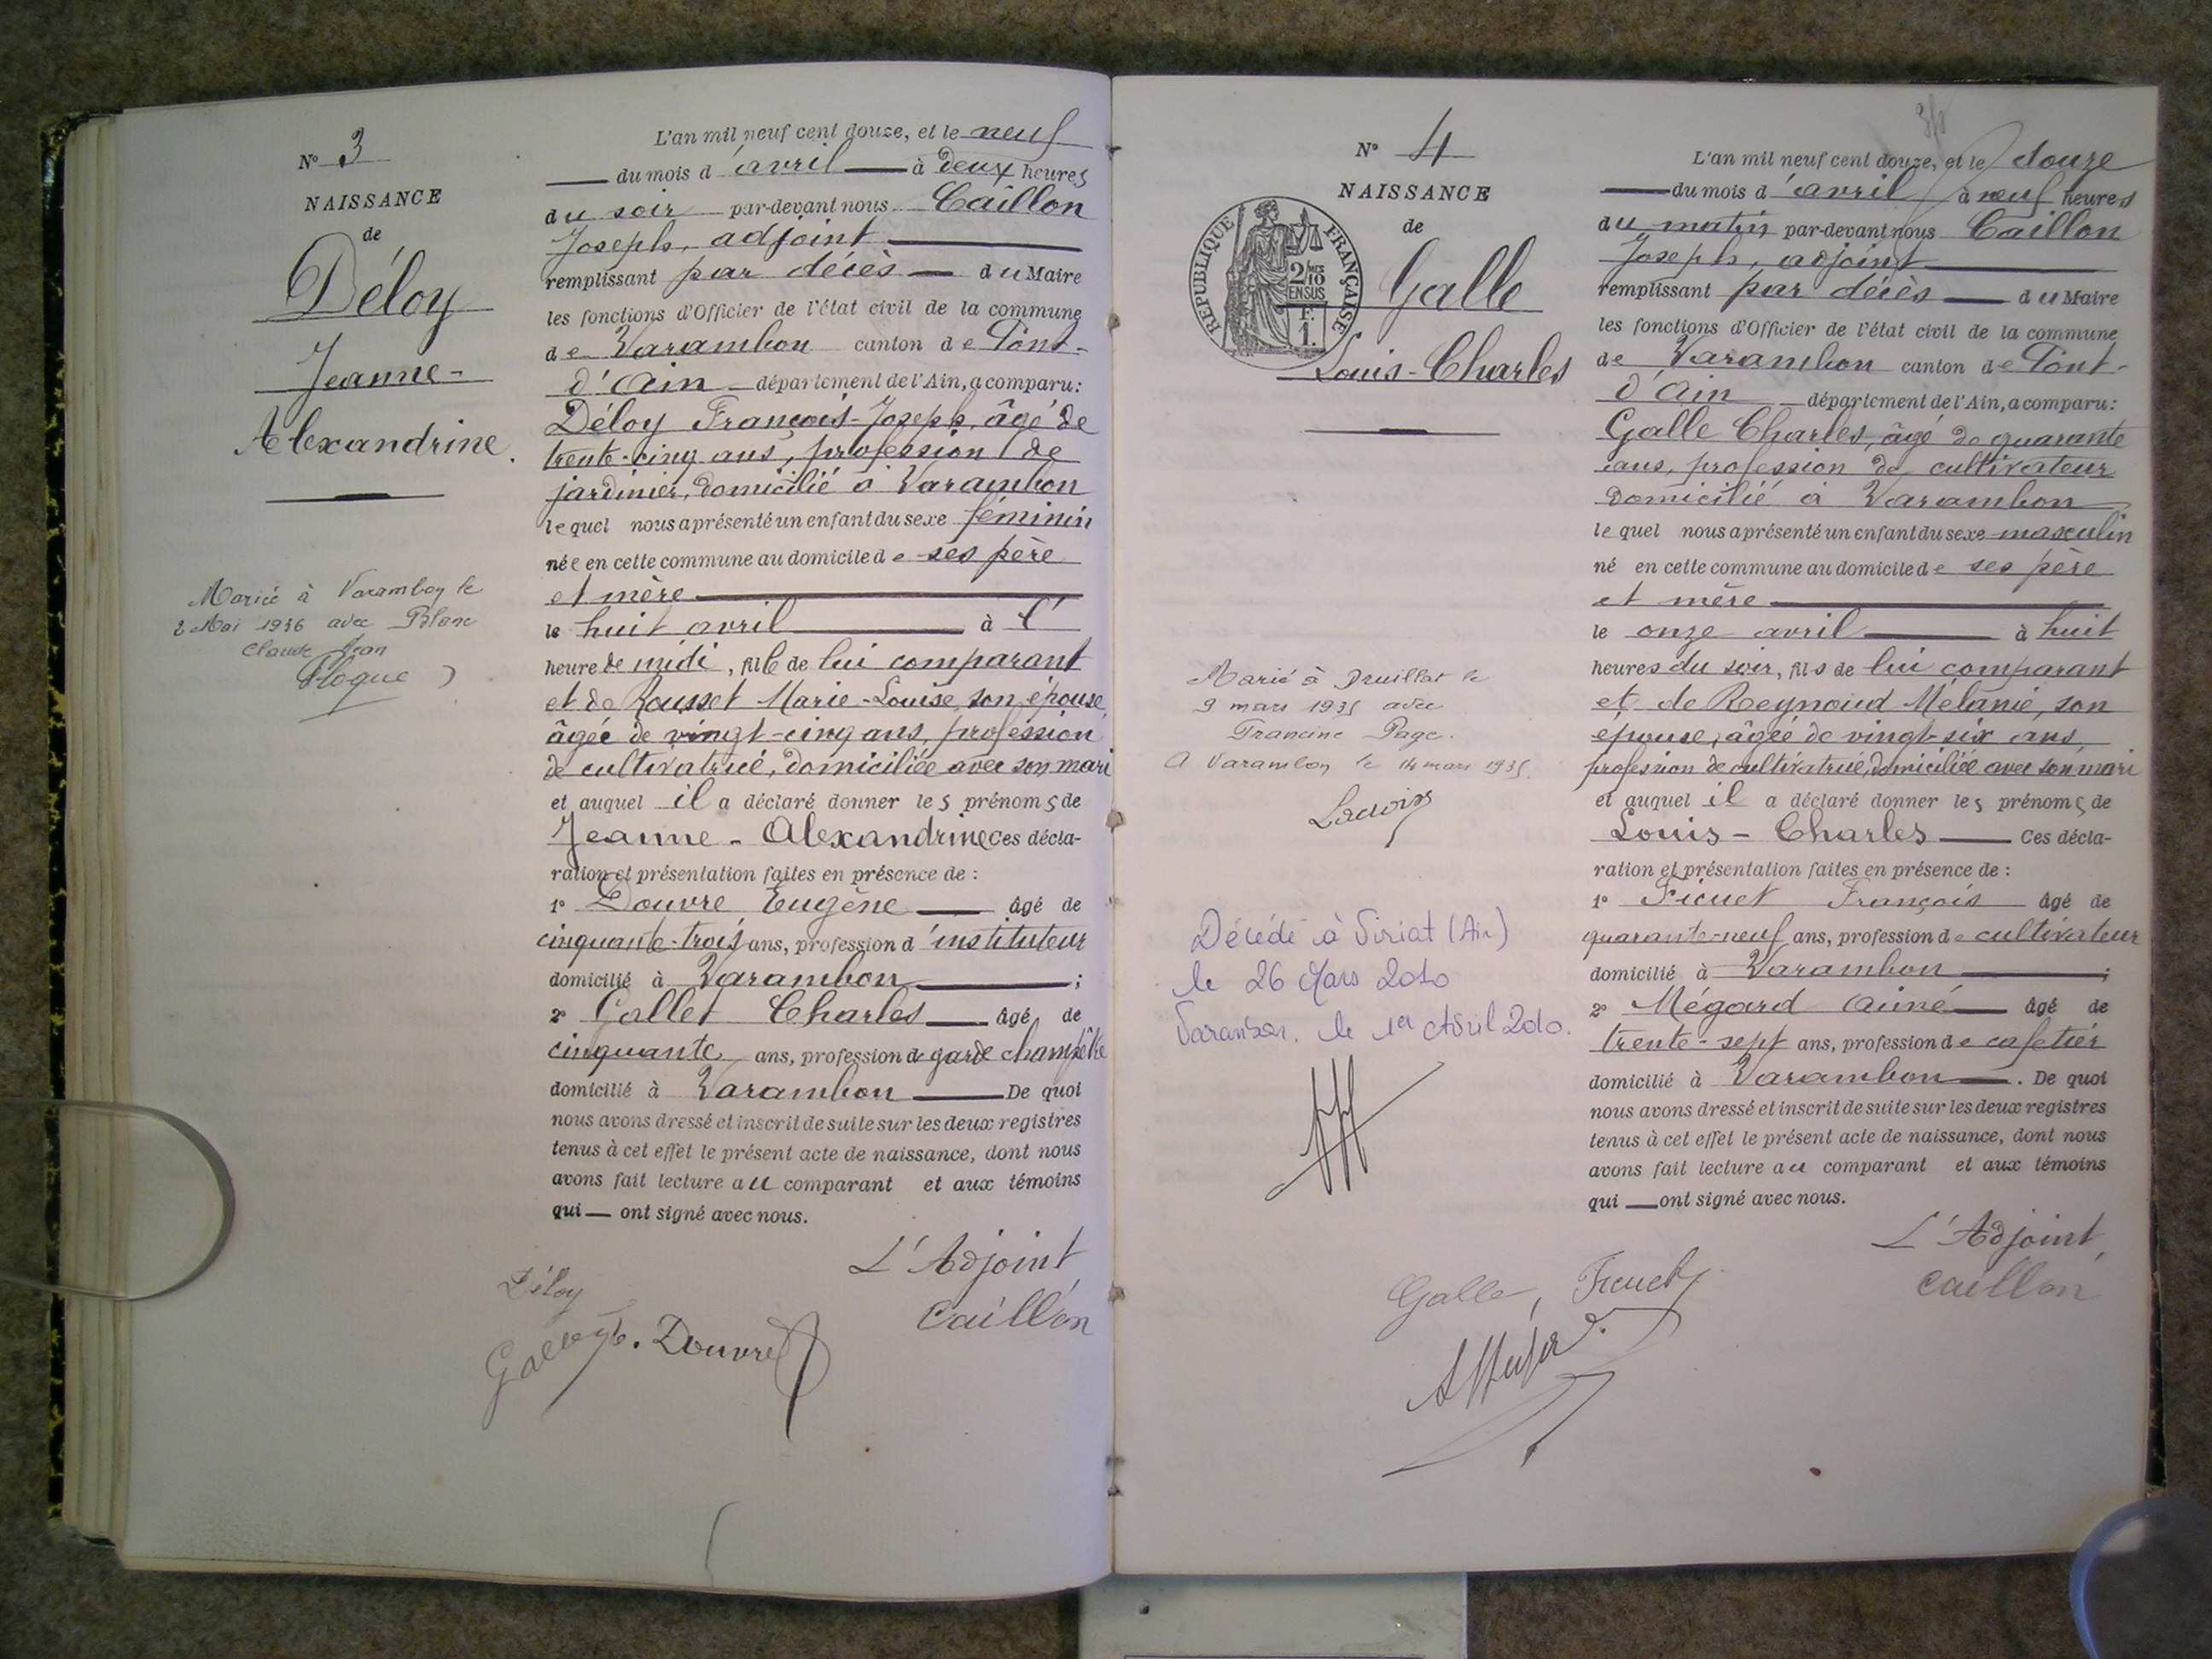 N° 3
NAISSANCE
de
Déloy
Jeanne-
Alexandrine.
Mariée à Varambon le
2 Mai 1936 avec Blanc
Claude Jean
L'an mil neuf cent douze, et le neuf
du mois d'avril à deux heures
du soir par-devant nous Caillon
Joseph, adjoint
remplissant par décès du Maire
les fonctions d'Officier de l'état civil de la commune
de Varambon canton de Pont-
d'Ain département de l'Ain, a comparu:
Déloy François-Joseph, âgé de
trente-cinq ans, profession de
jardinier, domicilié à Varambon
lequel nous a présenté un enfant du sexe féminin
née en cette commune au domicile de ses père
et mère
le huit avril à l'
heure de midi, fille de lui comparant
et de Rousset Marie-Louise, son épouse,
âgée de vingt-cinq ans, profession
de cultivatrice, domiciliée avec son mari
et auquel il a déclaré donner les prénoms de
Jeanne-Alexandrine Ces décla-
ration et présentation faites en présence de :
1° Douvre Eugène âgé de
cinquante-trois ans, profession d'instituteur
domicilié à Varambon ;
2° Gallet Charles âgé de
cinquante ans, profession de garde champêtre
domicilié à Varambon De quoi
nous avons dressé et inscrit de suite sur les deux registres
tenus à cet effet le présent acte de naissance, dont nous
avons fait lecture au comparant et aux témoins
qui ont signé avec nous.
L'Adjoint
Caillon
Déloy
Douvre
N° 4
NAISSANCE
de
REPUBLIQUE FRANÇAISE
2/10
EN SUS
F.
1.
Galle
Louis-Charles
Marié à Druillat le
9 mars 1935 avec
Francine Page.
A Varambon le 14 mars 1935.
Décédé à Viriat (Ain)
le 26 Mars 2010
Varambon, le 1er Avril 2010.
L'an mil neuf cent douze, et le douze
du mois d'avril à neuf heures
du matin par-devant nous Caillon
Joseph, adjoint
remplissant par décès du Maire
les fonctions d'Officier de l'état civil de la commune
de Varambon canton de Pont-
d'Ain département de l'Ain, a comparu:
Galle Charles, âgé de quarante
ans, profession de cultivateur
domicilié à Varambon
lequel nous a présenté un enfant du sexe masculin
né en cette commune au domicile de ses père
et mère
le onze avril à huit
heures du soir, fils de lui comparant
et de Reynaud Mélanie, son
épouse, âgée de vingt-six ans,
profession de cultivatrice, domiciliée avec son mari
et auquel il a déclaré donner les prénoms de
Louis-Charles Ces décla-
ration et présentation faites en présence de :
1° Ficuet François âgé de
quarante-neuf ans, profession de cultivateur
domicilié à Varambon ;
2° Mégard Aimé âgé de
trente-sept ans, profession de cafetier
domicilié à Varambon . De quoi
nous avons dressé et inscrit de suite sur les deux registres
tenus à cet effet le présent acte de naissance, dont nous
avons fait lecture au comparant et aux témoins
qui ont signé avec nous.
L'Adjoint,
Caillon
Galle, Ficuet